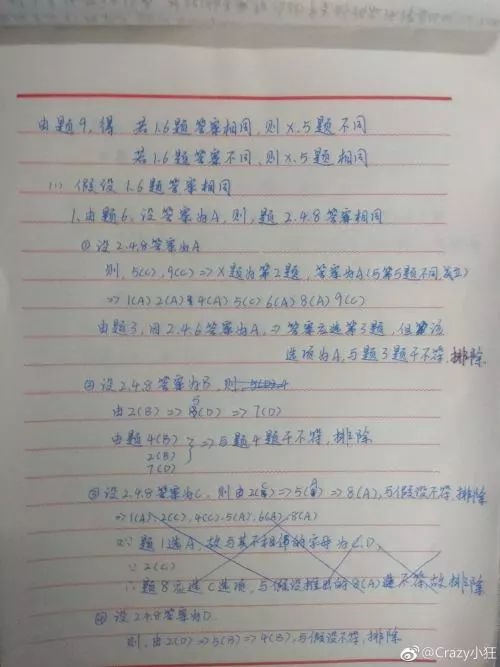 由题9,得 若1.6题答案相同,则X.5题不同
若1.6题答案不同,则X.5题相同
(1) 假设1.6题答案相同
1.由题6,设答案为A,则,题2.4.8答案相同
①设2.4.8答案为A
则,5(C),9(C)=>X题为第2题,答案为A(与第5题不同,成立)
=>1(A)2(A)4(A)5(C)6(A)8(A)9(C)
由题3,因2.4.6答案为A,=>答案应选第3题,但该
选项为A,与题3题干不符,排除
②设2.4.8答案为B,则,
由2(B)=>5(D)=>7(D)
由题4(B)
2(B)
7(D)
=>与题4题干不符,排除
③设2.4.8答案为C,则由2(C)=>5(A)=>8(A),与假设不符,排除
=>1(A),2(C),4(C).5(A),6(A).8(A)
∵题1选A,故与其不相邻的字母为C.D,
∵2(C)
∴题8应选C选项,与假设推出的8(A)不符,故排除
④设2.4.8答案为D
则,由2(D)=>5(B)=>4(B),与假设不符,排除
@Crazy小狂